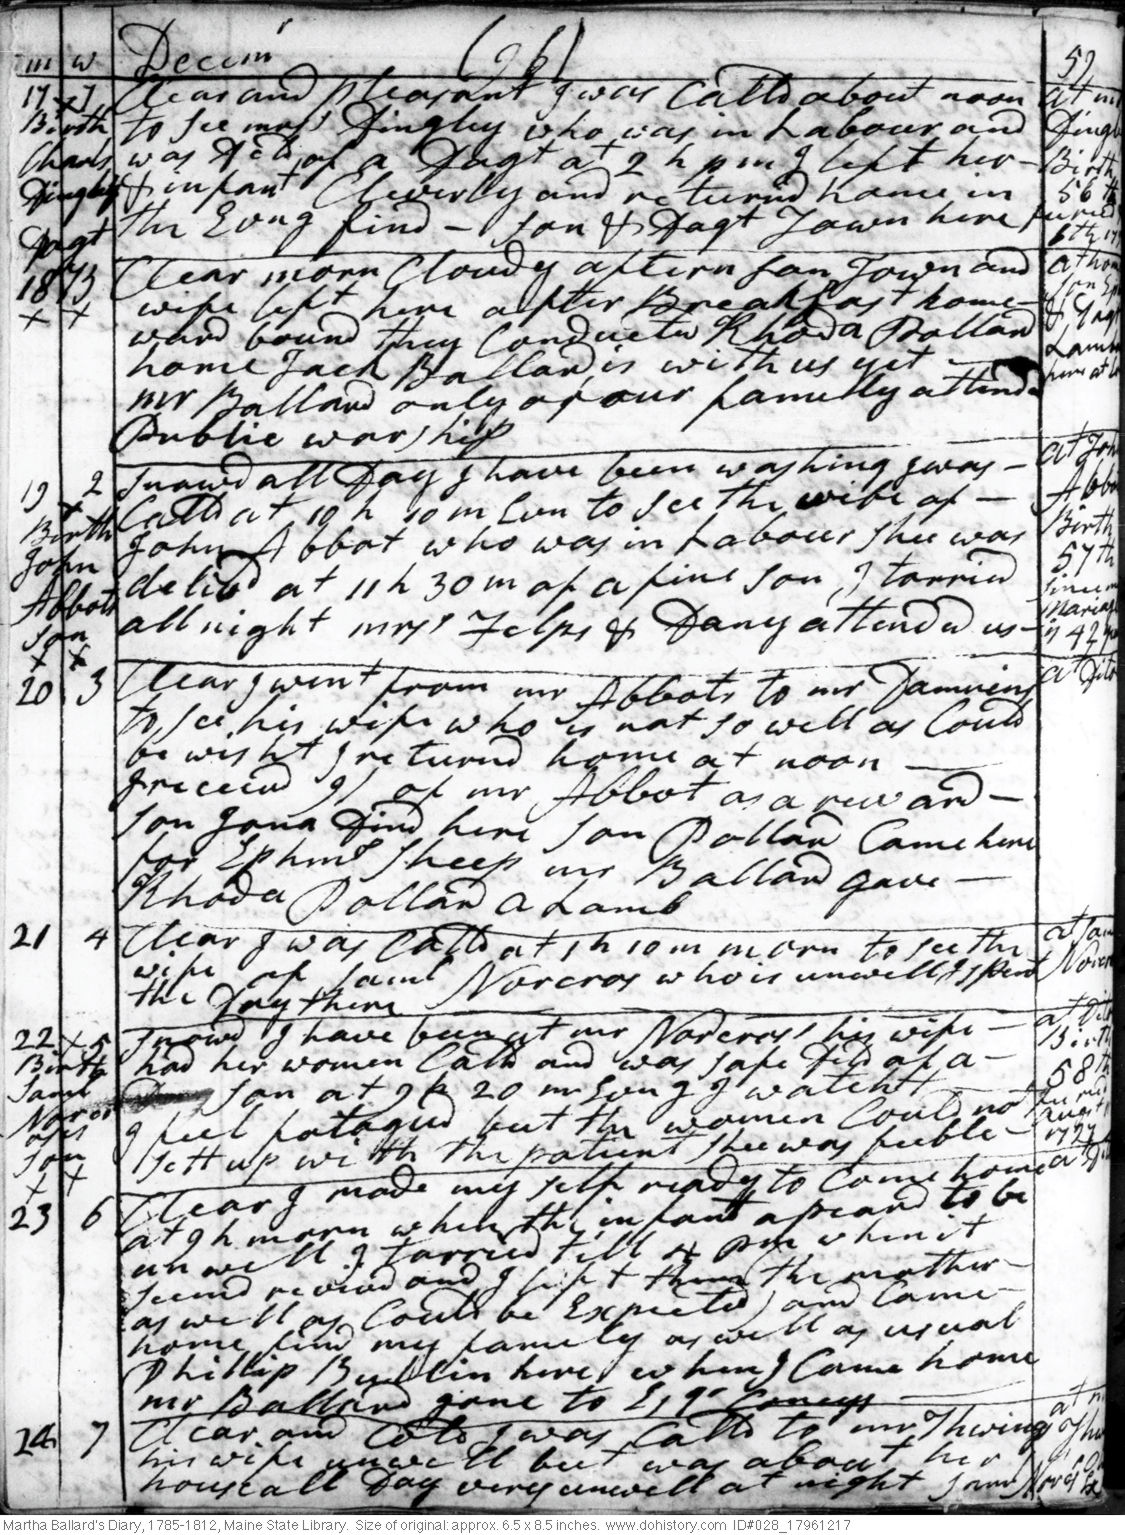 m w Decemr (96) 52
17 x 7 Clear and pleasant I was Calld about noon at mr
Birth to See mrss Dingley who was in Labour and Dingl
Charls was Dld of a Dagt at 2 h pm I left her - Birth
Dingleys & infant Cleverly and returnd home in 56th
Dagt the Evng find - Son & Dagt Town here
18 73 Clear morn Cloudy aftern Son Town and at hom
x x wife left here after Breakfast home- Son
ward bound they Conducted Rhoda Pollard & Dagt
home Jack Ballard is with us yet - Lamb
mr Ballard only of our familly attended here at
Public worship
19 x 2 Snowd all Day I have been washing I was - at Joh
Birth Calld at 10 h 10 m Evn to See the wife of - Abbo
John John Abbot who was in Labour Shee was Birth
Abbots delivd at 11 h 30 m of a fine Son, I tarried 57th
Son all night mrss Felps & Dany attended us - Since my
x x Mariage
in 42
20 3 Clear I went from mr Abbots to mr at Dito
to See his wife who is not So well as Could
be wisht I returnd home at noon
I receivd 9/ of mr Abbot as a reward -
Son Jona Dind here Son Pollard Came here
for Ephms Sheep mr Ballard gave -
Rhoda Pollard a Lamb
21 4 Clear I was Calld at 1 h 10 m morn to See the at Sam
wife of Saml Norcros who is unwell I Spent Norcr
the Day there
22 x 5 Snowd I have been at mr Norcross his wife - at Dit
Birth had her women Calld and was Safe Dld of a - Birth
Saml Son at 9 h 20 m Evng I watcht 58th
Norcrosss I feel fatagud but the women Could not
Son Sett up with the patient Shee was feeble - 1727
x x
23 6 Clear I made my Self ready to Come home at Di
at 9 h morn when the infant apeard to be
unwell I tarried till 4 pm when it
Seemd revivd and I left them the mother -
as well as Could be Expected) and Came -
home find my famely as well as usual
Phillip Bullin here when I Came home
mr Ballard gone to Esqr Coneys
24 7 Clear and Cold I was Calld to mr Thwings at m
his wife unwell but was about her Thw
house all Day very unwell at night
Martha Ballard's Diary, 1785-1812, Maine State Library. Size of original: approx. 6.5 x 8.5 inches. www.dohistory.com ID#028_17961217